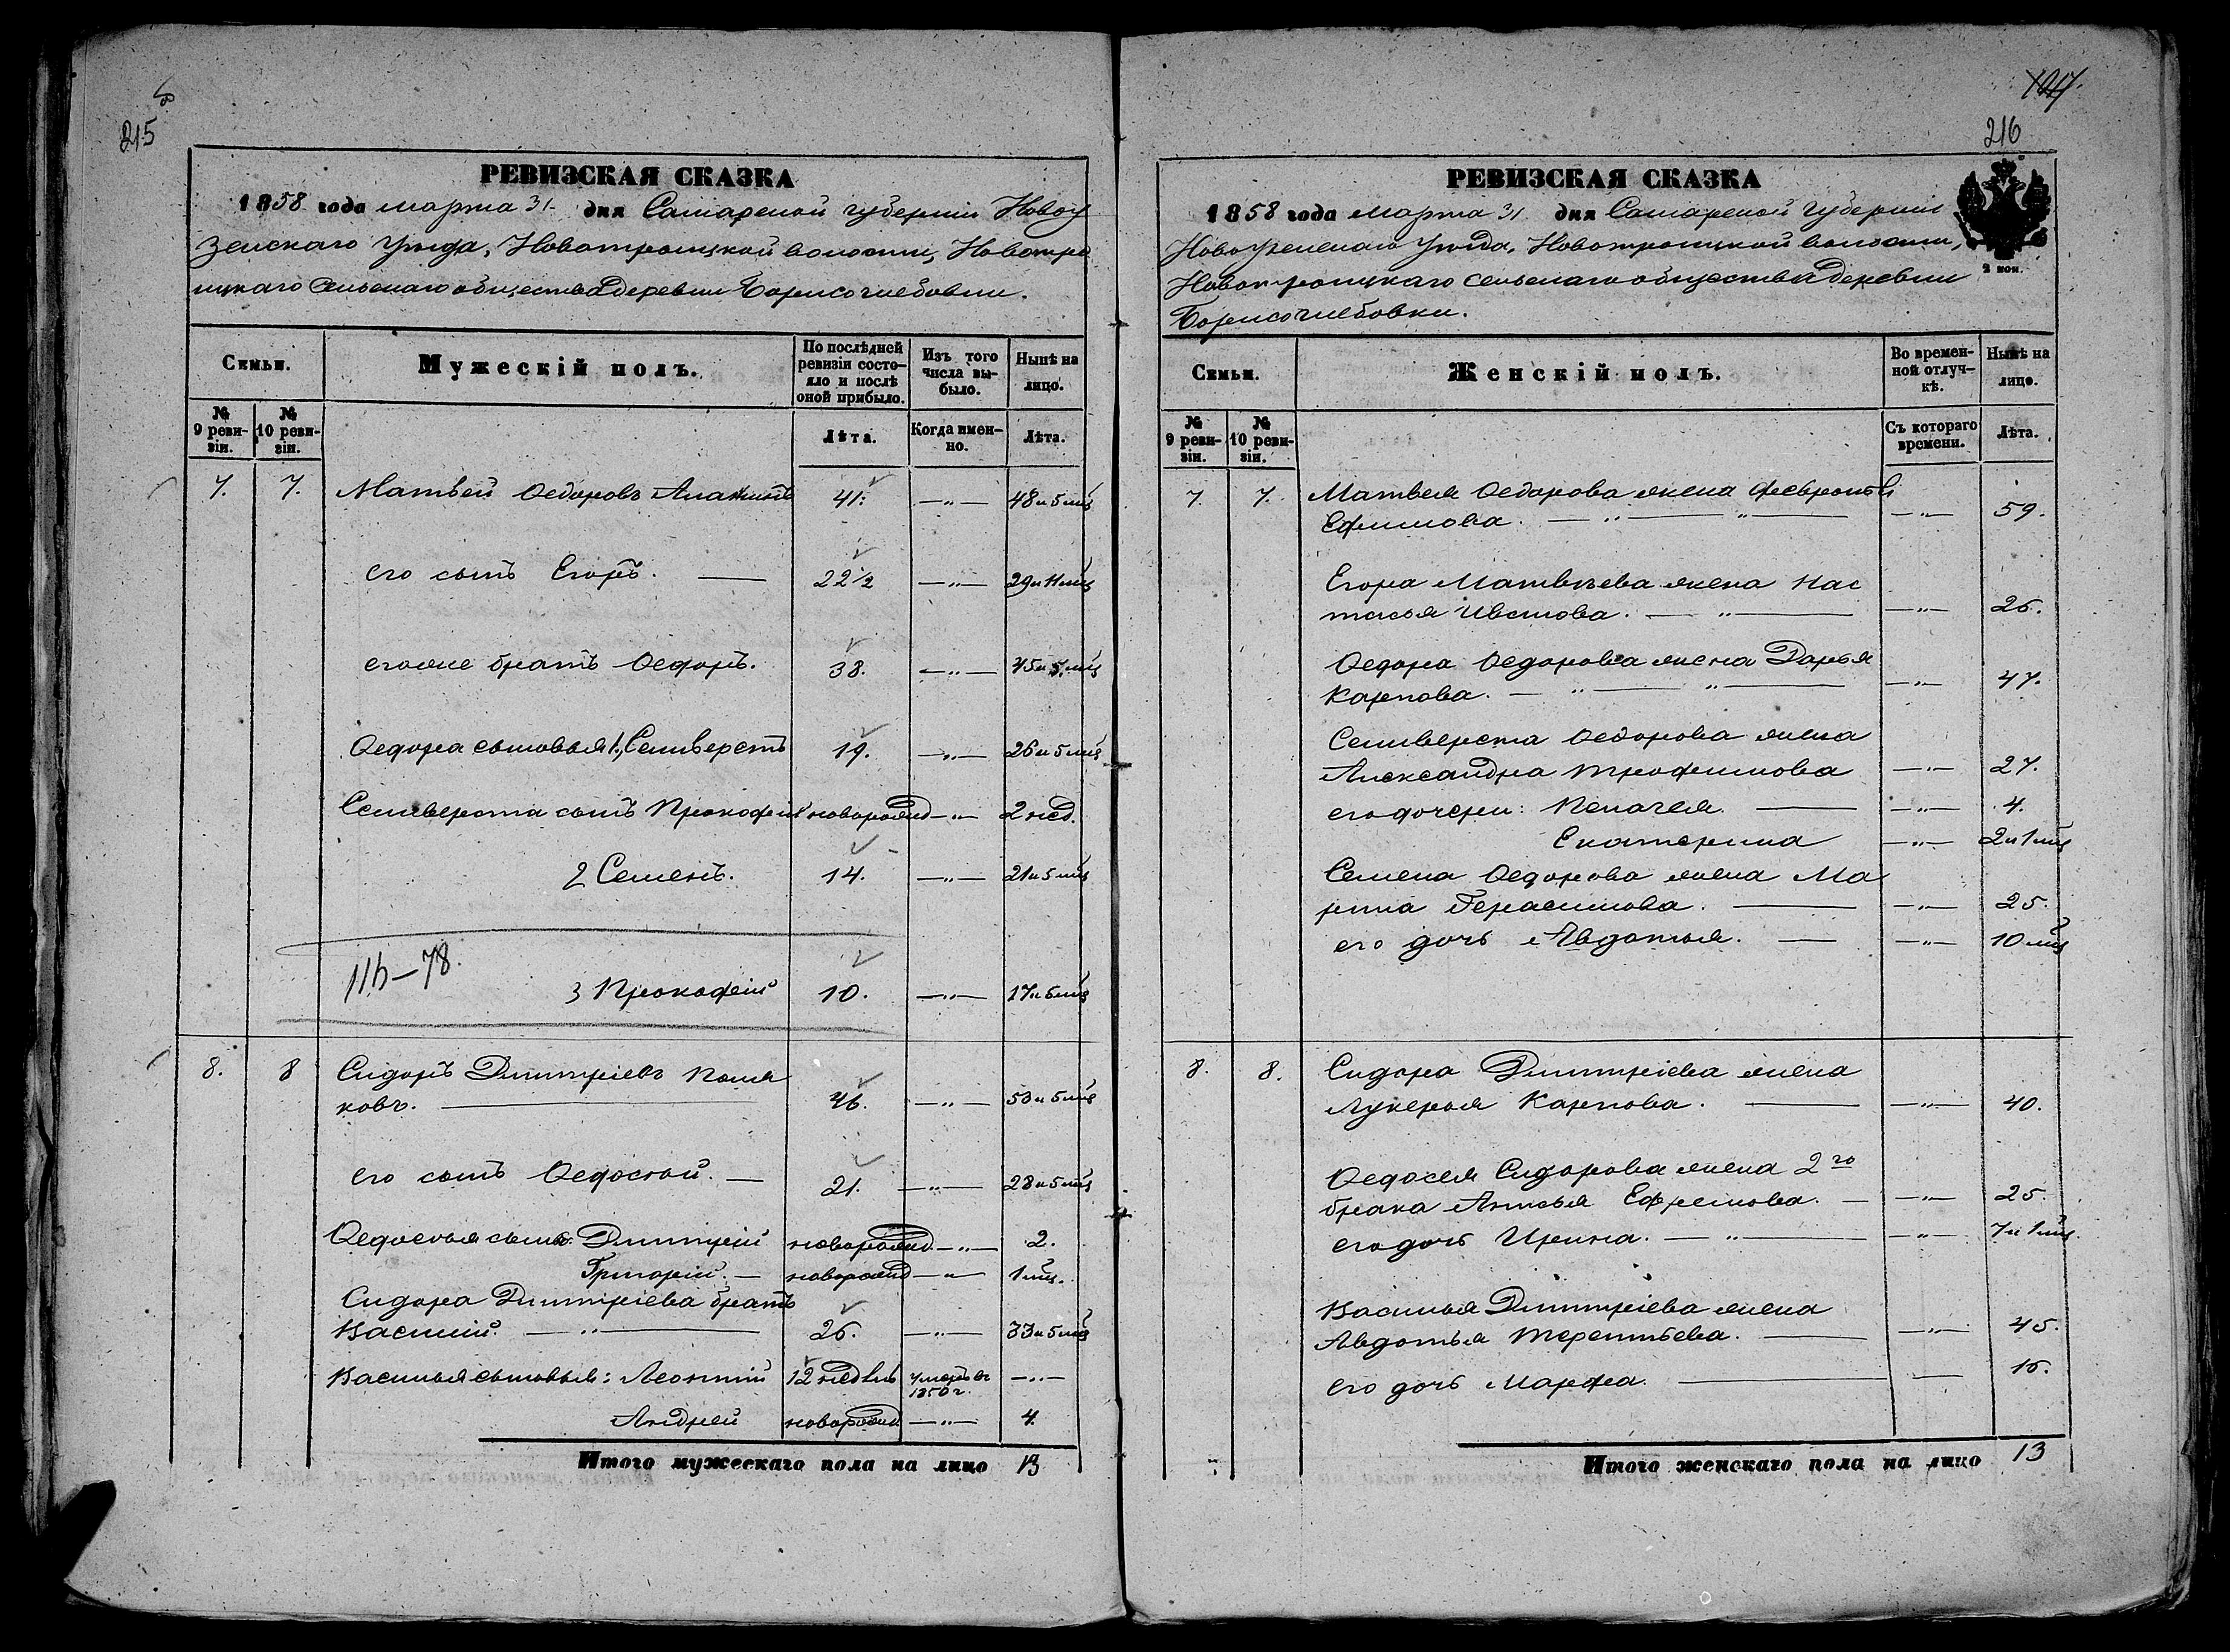 215
РЕВИЗСКАЯ СКАЗКА
1858 года марта 31 дня Самарской губерніи Новоу
зенскаго Уѣзда, Новотроицкой волости, Новотро
ицкаго сельскаго общества деревни Борисоглебовки.
Семьи.
Мужескій полъ.
По послѣдней ревизіи состояло и послѣ оной прибыло.
Изъ того числа выбыло.
Нынѣ на лицо.
№ 9 ревизіи.
№ 10 ревизіи.
Лѣта.
Когда именно.
Лѣта.
7. 7. Матвей Ѳедоровъ 41. —„— 48 и 5 мцъ
его сынъ Егоръ. — 22 1/2 —„— 29 и 11 мцъ
егоже братъ Ѳедоръ. 38. —„— 45 и 5 мцъ
Ѳедора сыновья 1, Селиверстъ 19. —„— 26 и 5 мцъ
Селиверста сынъ Прокофій новорожд —„— 2 нед.
2 Семенъ. 14. —„— 21 и 5 мцъ
3 Прокофій 10. —„— 17 и 5 мцъ
8. 8 Сидоръ Дмитріевъ Поля
ковъ. — 46. —„— 53 и 5 мцъ
его сынъ Ѳедосѣй. — 21. —„— 28 и 5 мцъ
Ѳедосѣя сынъ Дмитрій новорожд —„— 2.
Григорій. — новорожд —„— 1 мцъ.
Сидора Дмитріева братъ
Василій. —„— 26. —„— 33 и 5 мцъ
Василья сыновья: Леонтій 12 недѣль умеръ въ 1850 г. —„—
Андрей новорожд —„— 4.
Итого мужескаго пола на лицо 13
216
РЕВИЗСКАЯ СКАЗКА
1858 года марта 31 дня Самарской губерніи
Новоузенскаго Уѣзда, Новотроицкой волости,
Новотроицкаго сельскаго общества деревни
Борисоглебовки.
2 коп.
Семьи.
Женскій полъ.
Во временной отлучкѣ.
Нынѣ на лицо.
№ 9 ревизіи.
№ 10 ревизіи.
Съ котораго времени.
Лѣта.
7. 7. Матвея Ѳедорова жена Февронья
Ефимова. —„—„— —„— 59.
Егора Матвѣева жена Нас
тасья Иванова. —„— —„— 26.
Ѳедора Ѳедорова жена Дарья
Карпова. —„—„— —„— 47.
Селиверста Ѳедорова жена
Александра Трофимова —„— 27.
его дочери: Пелагея. — —„— 4.
Екатерина —„— 2 и 1 мцъ
Семена Ѳедорова жена Ма
рина Герасимова. — —„— 25.
его дочь Авдотья. — —„— 10 мцъ
8. 8. Сидора Дмитріева жена
Лукерья Карпова. — —„— 40.
Ѳедосея Сидорова жена 2го
брака Анисья Ефремова. — —„— 25.
его дочь Ирина. —„— —„— 7 и 1 мцъ.
Василья Дмитріева жена
Авдотья Терентьева. — —„— 45.
его дочь Марфа. — — 16.
Итого женскаго пола на лицо 13